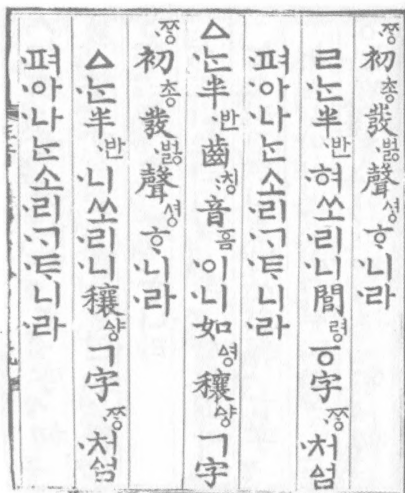 ·ᄍᆞᆼ初총發·벓聲셩ᄒᆞ·니·라
ㄹ·ᄂᆞᆫ半·반·혀쏘·리·니閭령ㆆ字·ᄍᆞᆼ·처ᅀᅥᆷ
·펴·아·나·ᄂᆞᆫ소·리·ᄀᆞ·ᄐᆞ·니·라
ㅿ·ᄂᆞᆫ半·반齒:칭音ᅙᅳᆷ·이·니如ᅀᅧᆼ穰ᅀᅣᆼㄱ字
·ᄍᆞᆼ初총發·벓聲셩ᄒᆞ·니·라
ㅿ·ᄂᆞᆫ半·반·니쏘·리·니穰ᅀᅣᆼㄱ字·ᄍᆞᆼ·처ᅀᅥᆷ
·펴·아·나·ᄂᆞᆫ소·리·ᄀᆞ·ᄐᆞ·니·라